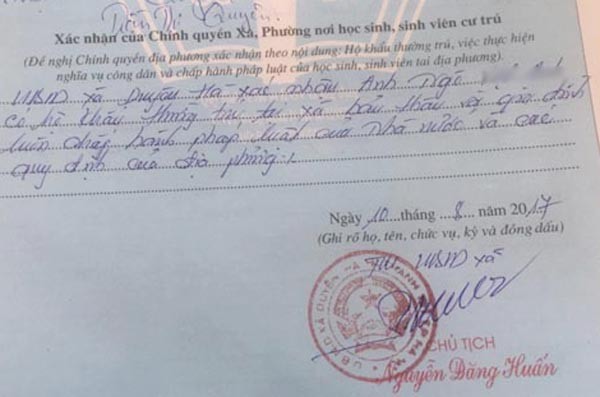 Trần Thị Quyên
Xác nhận của Chính quyền Xã, Phường nơi học sinh, sinh viên cư trú
(Đề nghị Chính quyền địa phương xác nhận theo nội dung: Hộ khẩu thường trú, việc thực hiện
nghĩa vụ công dân và chấp hành pháp luật của học sinh, sinh viên tại địa phương).
UBND xã Duyên Hà xác nhận Anh Ngô
có hộ khẩu thường trú tại xã, bản thân và gia đình
luôn chấp hành pháp luật của Nhà nước và các
quy định của địa phương./.
Ngày 10 tháng 8 năm 2017
(Ghi rõ họ, tên, chức vụ, ký và đóng dấu)
TM UBND xã
U.B.N.D XÃ DUYÊN HÀ
CHỦ TỊCH
Nguyễn Đăng Huấn